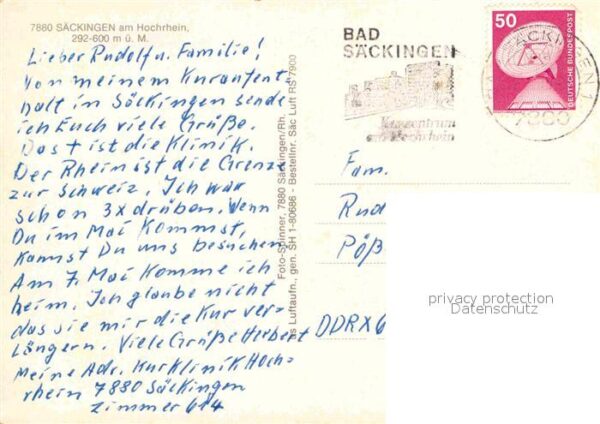 7880 SÄCKINGEN am Hochrhein,
292-600 m ü. M.
Lieber Rudolf u. Familie!
Von meinem Kuraufent
halt in Säckingen sende
ich Euch viele Grüße.
Das + ist die Klinik.
Der Rhein ist die Grenze
zur Schweiz. Ich war
schon 3x drüben. Wenn
Du im Mai kommst,
kannst Du uns besuchen.
Am 7. Mai komme ich
heim. Ich glaube nicht
das sie mir die Kur ver-
längern. Viele Grüße Herbert
Meine Adr. Kurklinik Hoch=
rhein 7880 Säckingen
Zimmer 614
Foto-Spinner, 7880 Säckingen/Rh.
Luftaufn., gen. SH 1-80686 - Bestellnr. Säc Luft RS 7900
BAD
SÄCKINGEN
Kurzentrum
am Hochrhein
50
DEUTSCHE BUNDESPOST
SÄCKINGEN 1
7880
Fam.
Rud
Pöß
DDR X6
privacy protection
Datenschutz